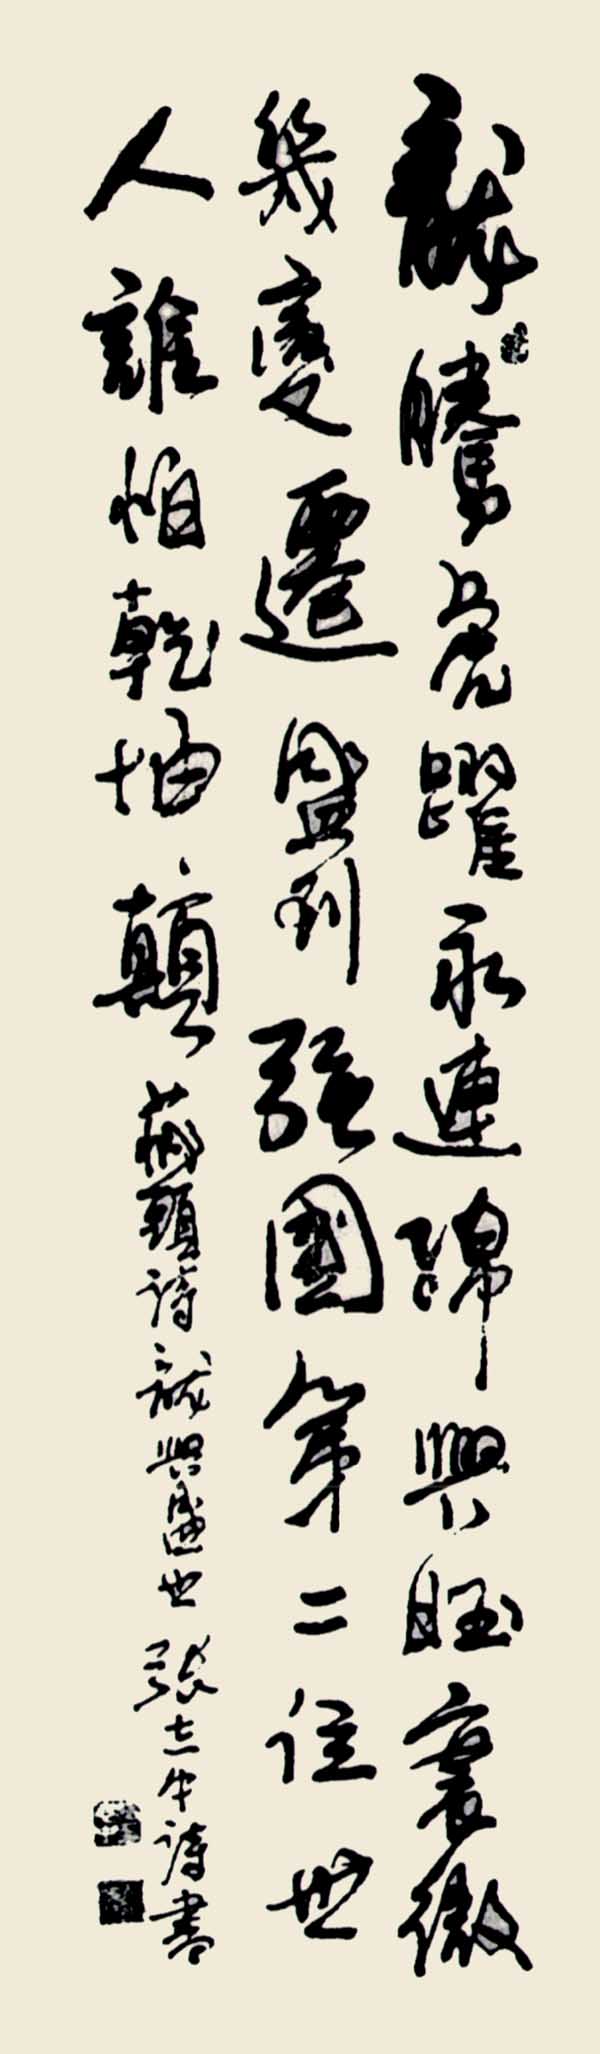 龍騰虎躍永連綿興旺衰微
幾變遷盛到强國第二位世
人誰怕乾坤顛
藏頭詩龍興盛世 張志年詩書